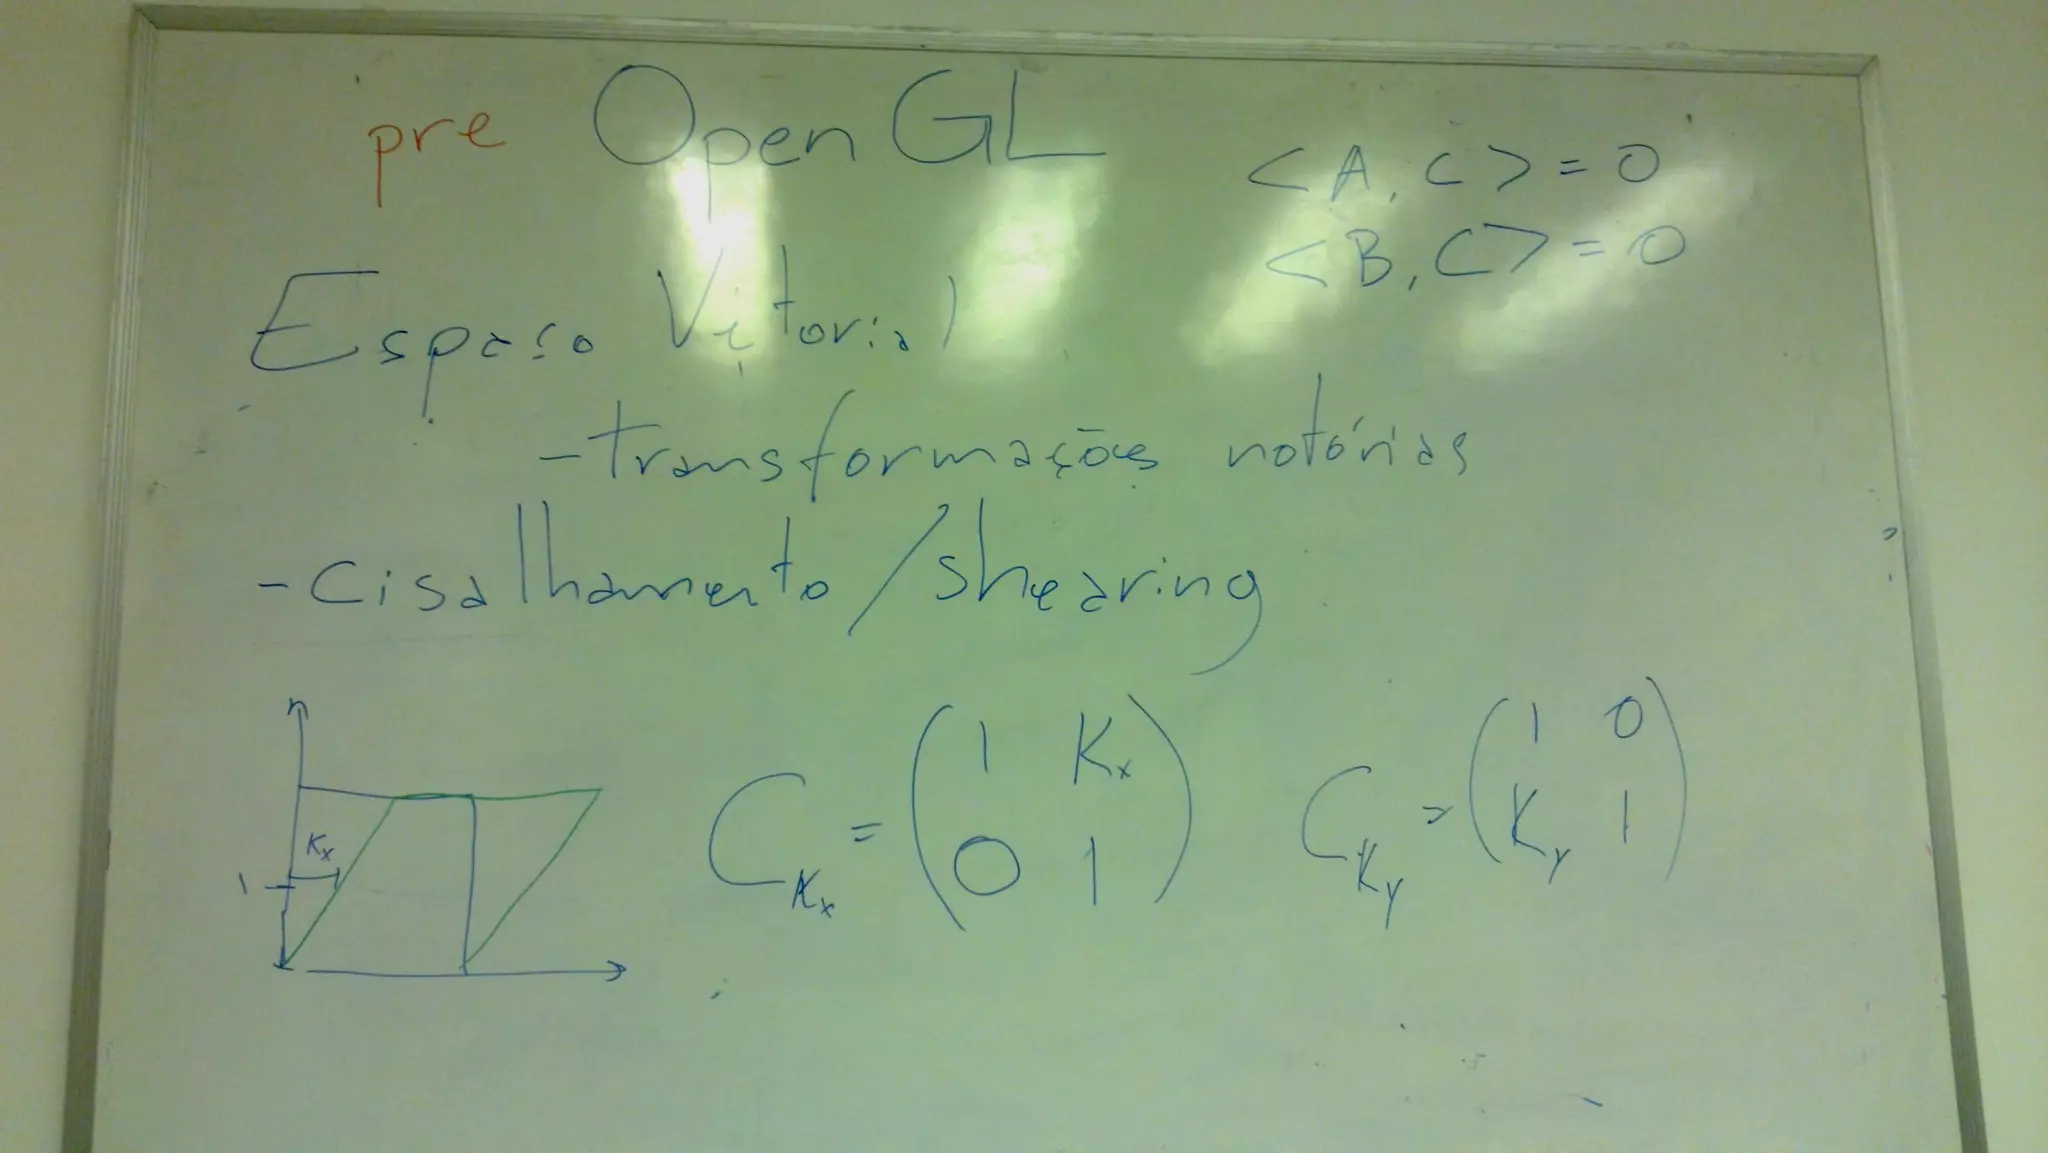 pre OpenGL
<A, C> = 0
<B, C> = 0
Espaço Vetorial
- transformações notórias
- Cisalhamento / shearing
Kx
1
C Kx = ( 1 Kx
0 1 )
C Ky = ( 1 0
Ky 1 )